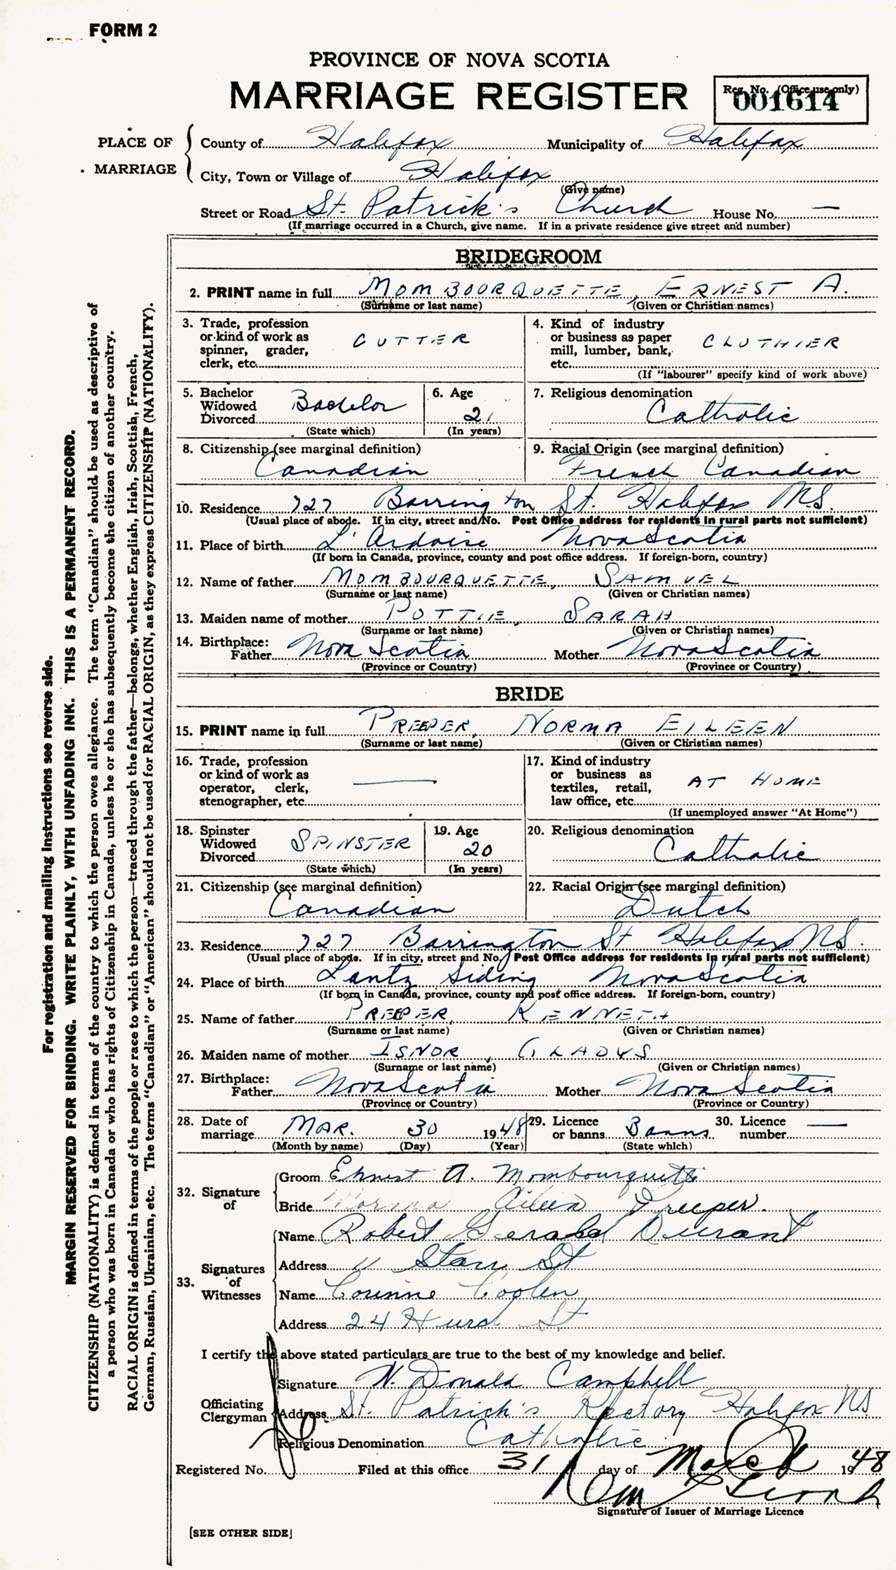 FORM 2
PROVINCE OF NOVA SCOTIA
MARRIAGE REGISTER
Reg. No. (Office use only)
001614
PLACE OF MARRIAGE
County of Halifax Municipality of Halifax
City, Town or Village of Halifax
(Give name)
Street or Road St. Patrick's Church House No. —
(If marriage occurred in a Church, give name. If in a private residence give street and number)
BRIDEGROOM
2. PRINT name in full MOMBOURQUETTE, ERNEST A.
(Surname or last name) (Given or Christian names)
3. Trade, profession or kind of work as spinner, grader, clerk, etc. CUTTER
4. Kind of industry or business as paper mill, lumber, bank, etc. CLOTHIER
(If "labourer" specify kind of work above)
5. Bachelor Widowed Divorced Bachelor
(State which)
6. Age 21
(In years)
7. Religious denomination
Catholic
8. Citizenship (see marginal definition)
Canadian
9. Racial Origin (see marginal definition)
French Canadian
10. Residence 727 Barrington St. Halifax N.S.
(Usual place of abode. If in city, street and No. Post Office address for residents in rural parts not sufficient)
11. Place of birth L'Ardoise Nova Scotia
(If born in Canada, province, county and post office address. If foreign-born, country)
12. Name of father MOMBOURQUETTE, SAMUEL
(Surname or last name) (Given or Christian names)
13. Maiden name of mother POTTIE, SARAH
(Surname or last name) (Given or Christian names)
14. Birthplace:
Father Nova Scotia Mother Nova Scotia
(Province or Country) (Province or Country)
BRIDE
15. PRINT name in full PREEPER, NORMA EILEEN
(Surname or last name) (Given or Christian names)
16. Trade, profession or kind of work as operator, clerk, stenographer, etc. —
17. Kind of industry or business as textiles, retail, law office, etc. AT HOME
(If unemployed answer "At Home")
18. Spinster Widowed Divorced SPINSTER
(State which)
19. Age 20
(In years)
20. Religious denomination
Catholic
21. Citizenship (see marginal definition)
Canadian
22. Racial Origin (see marginal definition)
Dutch
23. Residence 727 Barrington St Halifax N.S.
(Usual place of abode. If in city, street and No. Post Office address for residents in rural parts not sufficient)
24. Place of birth Lantz Siding Nova Scotia
(If born in Canada, province, county and post office address. If foreign-born, country)
25. Name of father PREEPER, KENNETH
(Surname or last name) (Given or Christian names)
26. Maiden name of mother ISNOR, GLADYS
(Surname or last name) (Given or Christian names)
27. Birthplace:
Father Nova Scotia Mother Nova Scotia
(Province or Country) (Province or Country)
28. Date of marriage MAR. 30 1948
(Month by name) (Day) (Year)
29. Licence or banns Banns
(State which)
30. Licence number —
32. Signature of
Groom Ernest A. Mombourquette
Bride Norma Eileen Preeper.
33. Signatures of Witnesses
Name Robert Gerald Durant
Address 11 Starr St
Name Corinne Coolen
Address 24 Hurd St.
I certify the above stated particulars are true to the best of my knowledge and belief.
Officiating Clergyman
Signature W. Donald Campbell
Address St. Patrick's Rectory Halifax NS
Religious Denomination Catholic
Registered No. Filed at this office 31 day of March 1948
Signature of Issuer of Marriage Licence
[SEE OTHER SIDE]
For registration and mailing instructions see reverse side.
MARGIN RESERVED FOR BINDING. WRITE PLAINLY, WITH UNFADING INK. THIS IS A PERMANENT RECORD.
CITIZENSHIP (NATIONALITY) is defined in terms of the country to which the person owes allegiance. The term "Canadian" should be used as descriptive of
a person who was born in Canada or who has rights of Citizenship in Canada, unless he or she has subsequently become the citizen of another country.
RACIAL ORIGIN is defined in terms of the people or race to which the person—traced through the father—belongs, whether English, Irish, Scottish, French,
German, Russian, Ukrainian, etc. The terms "Canadian" or "American" should not be used for RACIAL ORIGIN, as they express CITIZENSHIP (NATIONALITY).